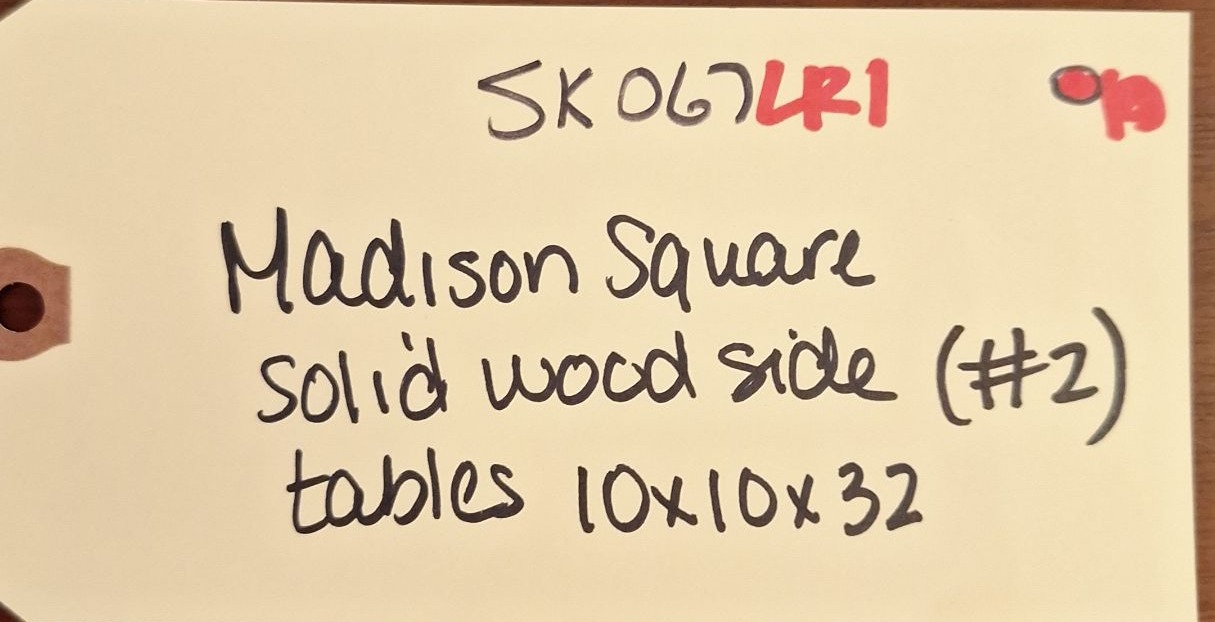 SK067LR1
Madison Square
solid wood side (#2)
tables 10x10x32